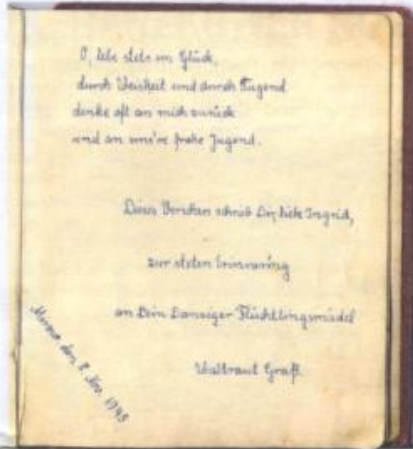 O, lebe stets im Glück,
durch Weisheit und durch Tugend
denke oft an mich zurück
und an uns're frohe Jugend.
Dieses Verschen schrieb Dir, liebe Ingrid,
zur steten Erinnerung
an Dein Danziger Flüchtlingsmädel
Waltraut Graß.
den 8. Nov. 1945